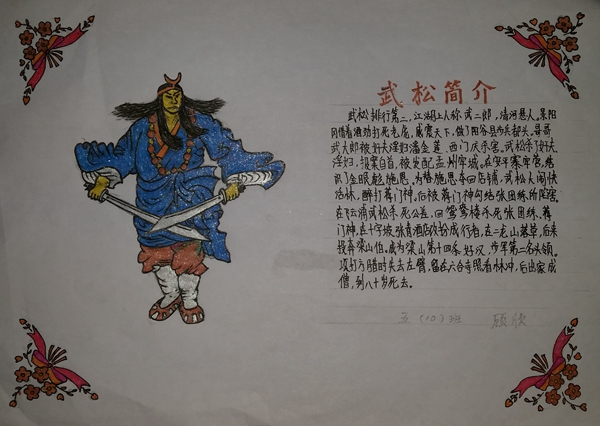 武松简介
武松排行第二,江湖上人称武二郎,清河县人,景阳
冈借着酒劲打死老虎,威震天下,做了阳谷县步兵都头,哥哥
武大郎被奸夫淫妇潘金莲、西门庆杀害,武松杀了奸夫
淫妇,投案自首,被发配孟州牢城。在安平寨牢营,结
识了金眼彪施恩,为替施恩夺回店铺,武松大闹快
活林,醉打蒋门神,后被蒋门神勾结张团练所陷害
在飞云浦武松杀死公差,回鸳鸯楼杀死张团练、蒋
门神,在十字坡张青酒店改扮成行者,在二龙山落草,后来
投奔梁山伯,成为梁山第十四条好汉,步军第二名头领。
攻打方腊时失去左臂,留在六合寺照看林冲,后出家成
僧,到八十岁死去。
五(10)班 顾欣